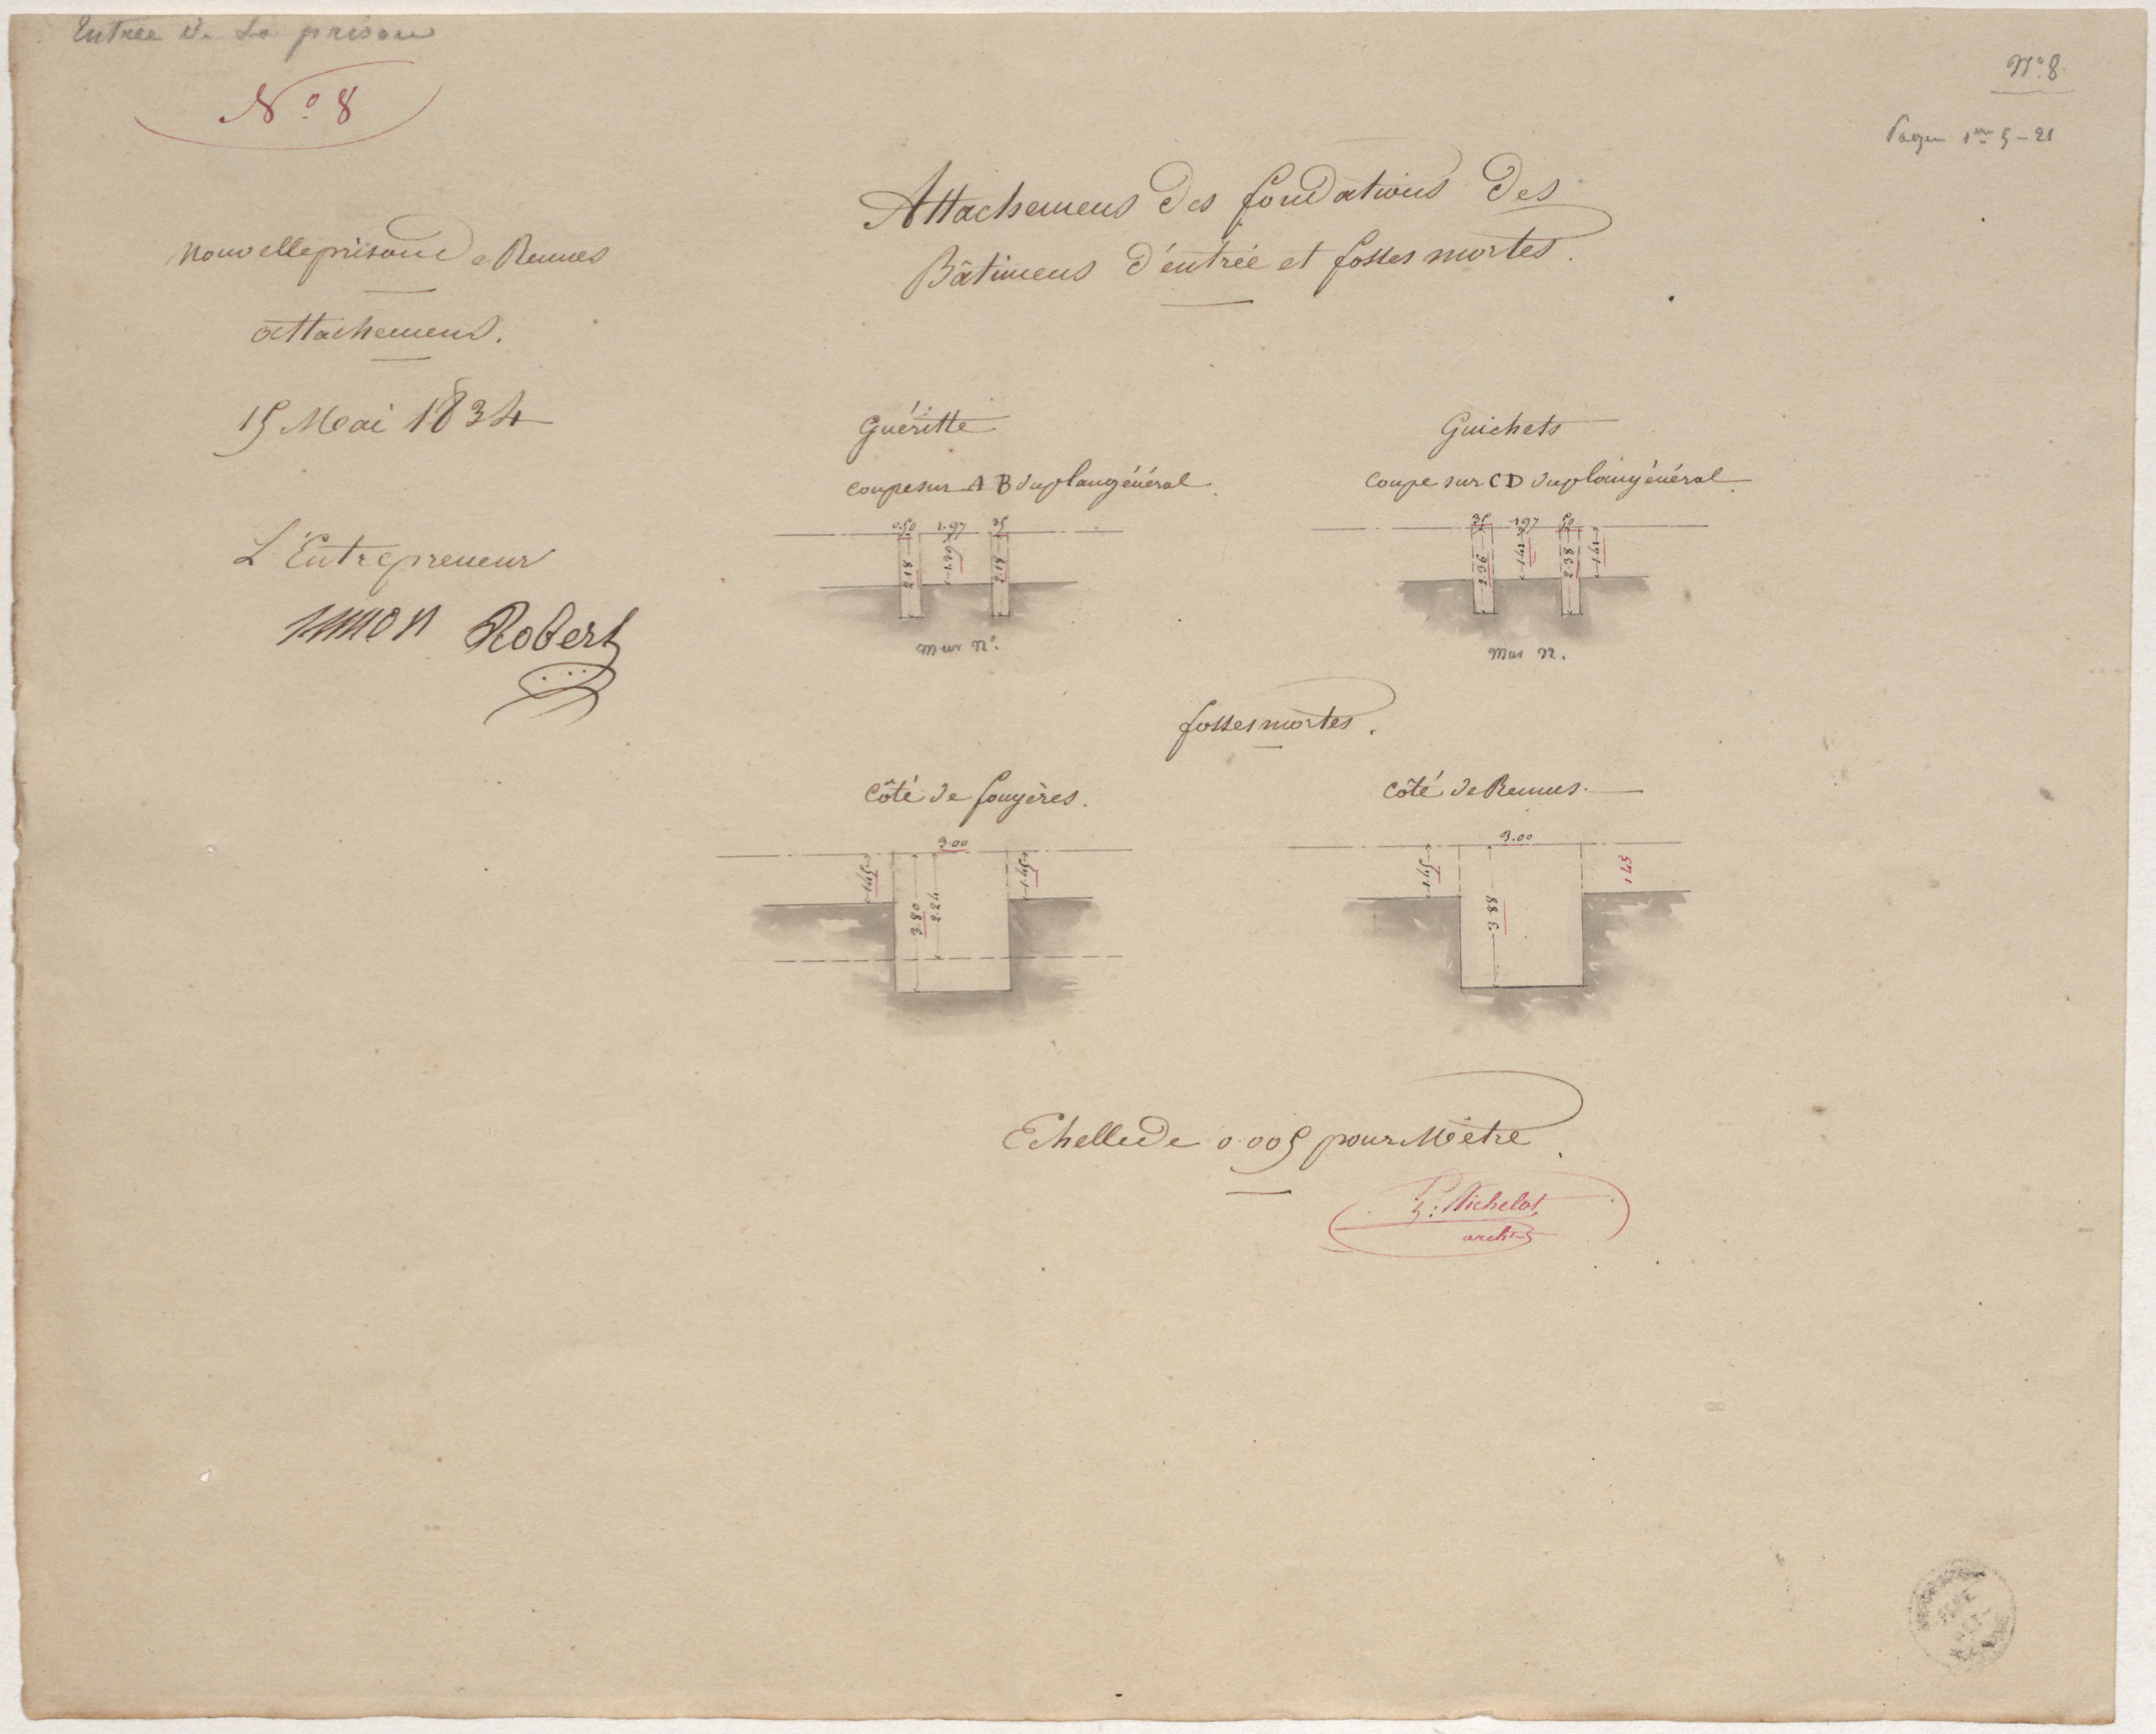 Entrée de la prison
N.º 8
N.º 8.
Page 1re 5-21
Attachemens des fondations des
Bâtimens d'entrée et fosses mortes.
Nouvelle prison de Rennes
attachemens.
15 Mai 1834
L'Entrepreneur
Robert
Guéritte
Coupe sur A B du plan général.
0.50 1.97 35
2.18 2.18
Mur N.º
Guichets
Coupe sur C D du plan général.
35 1.97 50
2.36 1.41 2.38 1.41
Mur N.
fosses mortes.
Côté de fougères.
3.00
1.45 3.80 2.24 1.45
Côté de Rennes.
3.00
1.45 3.88 1 43
Echelle de 0.005 pour Mètre.
Richelot
archte